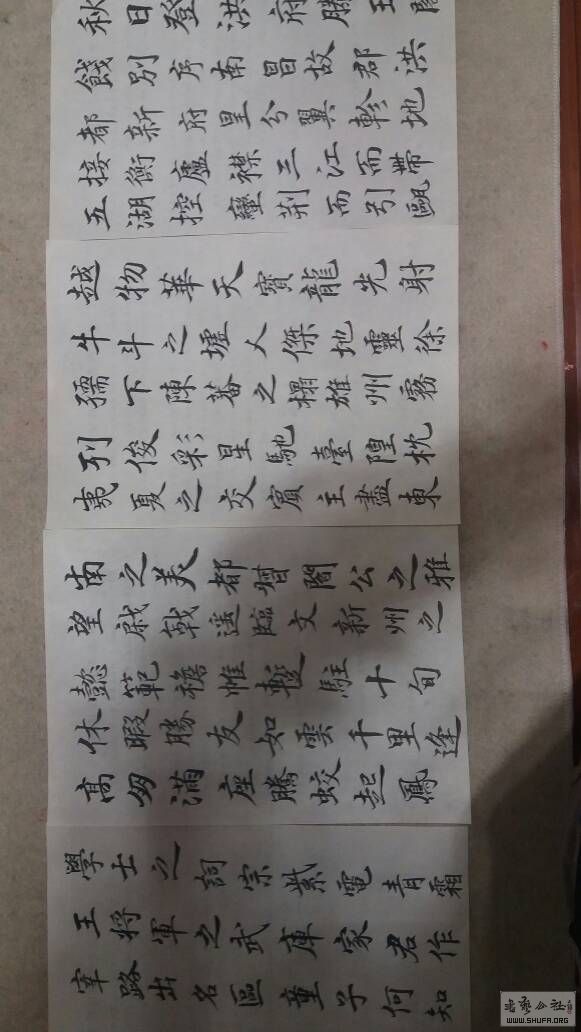 秋日登洪府滕王閣
餞別序南昌故郡洪
都新府星分翼軫地
接衡廬襟三江而帶
五湖控蠻荊而引甌
越物華天寶龍光射
牛斗之墟人傑地靈徐
孺下陳蕃之榻雄州霧
列俊彩星馳臺隍枕
夷夏之交賓主盡東
南之美都督閻公之雅
望棨戟遙臨文新州之
懿範襜帷暫駐十旬
休暇勝友如雲千里逢
高朋滿座騰蛟起鳳
學士之詞宗紫電青霜
王將軍之武庫家君作
宰路出名區童子何知
WWW.SHUFA.ORG